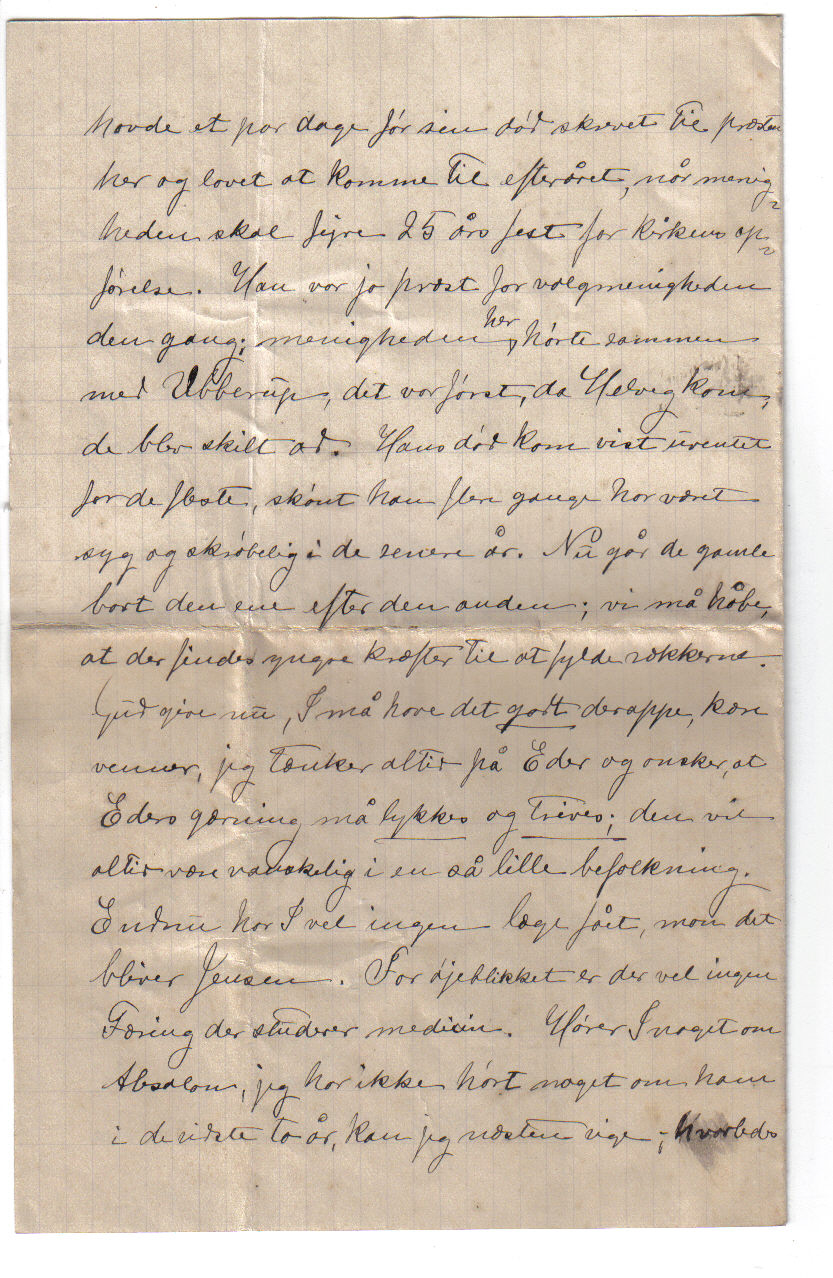 havde et par dage før sin död skrevet til præsten
her og lovet at komme til efteråret, når menig-
heden skal fejre 25 års fest for kirkens op-
førelse. Han var jo præst for valgmenigheden
den gang; menigheden her hørte sammen
med Ubberup, det var först, da Helveg kom,
de blev skilt ad. Hans död kom vist uventet
for de fleste, skönt han flere gange har været
syg og skröbelig i de senere år. Nu går de gamle
bort den ene efter den anden; vi må håbe,
at der findes yngre kræfter til at fylde rækkerne.
Gud give nu, I må have det godt deroppe, kære
venner, jeg tænker altid på Eder og ønsker, at
Eders gærning må lykkes og trives; den vil
altid være vanskelig i en så lille befolkning.
Endnu har I vel ingen læge fået, mon det
bliver Jensen. For öjeblikket er der vel ingen
Færing der studerer medicin. Hører I noget om
Absalon, jeg har ikke hört noget om ham
i de sidste to år, kan jeg næsten sige; hvorledes